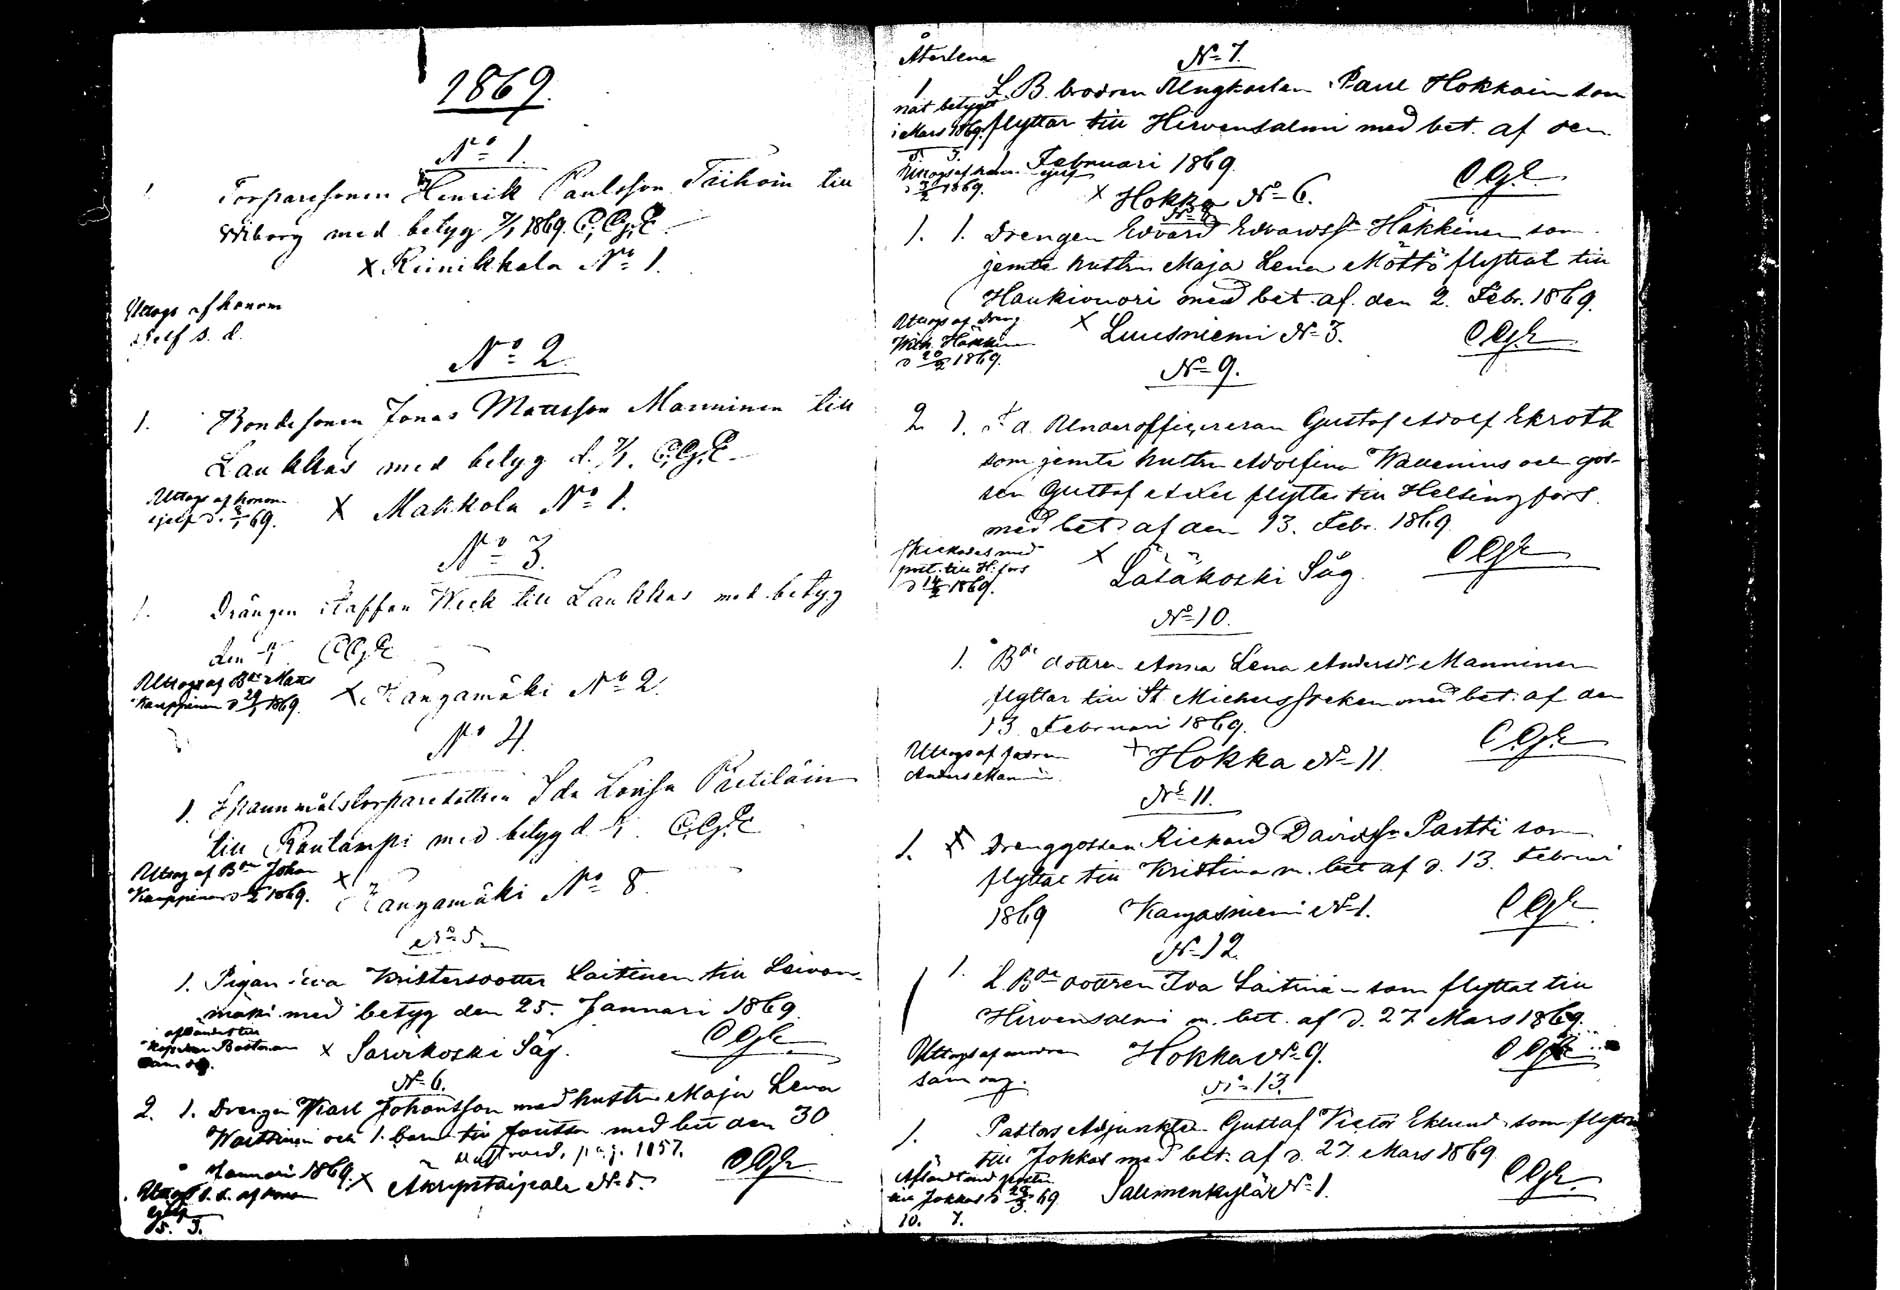 1869.
No 1.
Torparesonen Henrik Paulsson Tiihoin till
Wiborg med betyg 7/1 1869. C.Gj.E.
X Reinikkala No 1.
Uttogs af honom
sjelf s. d.
No 2.
1. Bondesonen Jonas Mattsson Manninen till
Laukkas med betyg d. 7/1. C.Gj.E.
Uttogs af honom
sjelf d. 69.
X Makkola No 1.
No 3.
1. Drängen Staffan Weck till Laukkas med betyg
den C.Gj.E
Uttogs af Bdn Matts
Kauppinen d 29/1 1869.
X Kangamäki No 2.
No 4.
1. Spannmålstorparedottren Ida Lovisa Pietiläin
till Rautampi med betyg d. C.Gj.E
Uttog af Bdn Johan
Kauppinen d 1869.
X
Kangamäki No 8.
No 5.
1. Pigan Kristersdotter Laitinen till Leivon-
mäki med betyg den 25. Januari 1869.
afsändes till
Kapellan Bostman
samma dag.
X Sarvikoski Såg. C Gj E.
No 6.
2. 1. Drengen Karl Johansson med hustru Maja Lena
och 1. barn till med bet den 30
Januari 1869. pag. 1157.
X No 5. C Gj E.
Uttogs s. d. af honom
sjelf
5. 3.
Återlemna
nat betyget
i Mars 1869.
No 7.
1. L. B. brodren Ungkarlen Paul Hokkain som
flyttar till Hirvensalmi med bet. af den
5. 5.
1. Februari 1869.
Uttogs af honom sjelf
d 3/2 1869.
X Hokka No 6. C Gj E.
No 8
1. 1. Drengen Edvard Edvardss. Häkkinen som
jemte hustru Maja Lena Möttö flyttat till
Haukivuori med bet. af. den 2. Febr. 1869.
Uttogs af Dreng
Wilh. Häkkinen
d 20/2 1869.
X Luusniemi No 3. C Gj E.
No 9.
2 1. F. d. Underofficeraren Gustaf Adolf Ekroth
som jemte hustru Adolfina Wallenius och gos-
sen Gustaf Axel flyttar till Helsingfors.
med bet af den 13. Febr. 1869.
Skickades med
post. till H:fors
d 14/2 1869.
X Läsäkoski Såg. C Gj E
No 10.
1. Bde dottren Anna Lena Andersdr Manninen
flyttar till St. Michels socken med bet. af den
13. Februari 1869.
Uttogs af fadren
Anders Mannin
+ Hokka No 11. C Gj E
No 11.
1. X Drenggossen Rickard Davidss. Partti som
flyttat till Kristina m. bet af d. 13. Februari
1869 Kangasniemi No 1. C Gj E
No 12.
1. L. Bde dottren Iva Laitinin som flyttat till
Hirvensalmi m. bet. af d. 27 Mars 1869.
Uttogs af modren
sam dag.
Hokka No 9. C Gj E
No 13.
1. Pastors Adjunkten Gustaf Victor Eklund som flyttar
till Jokkas med bet. af d. 27. Mars 1869.
Afsänd med posten
till Jokkas d 29/3 69
Salmenkylä No 1. C Gj E.
10. 7.